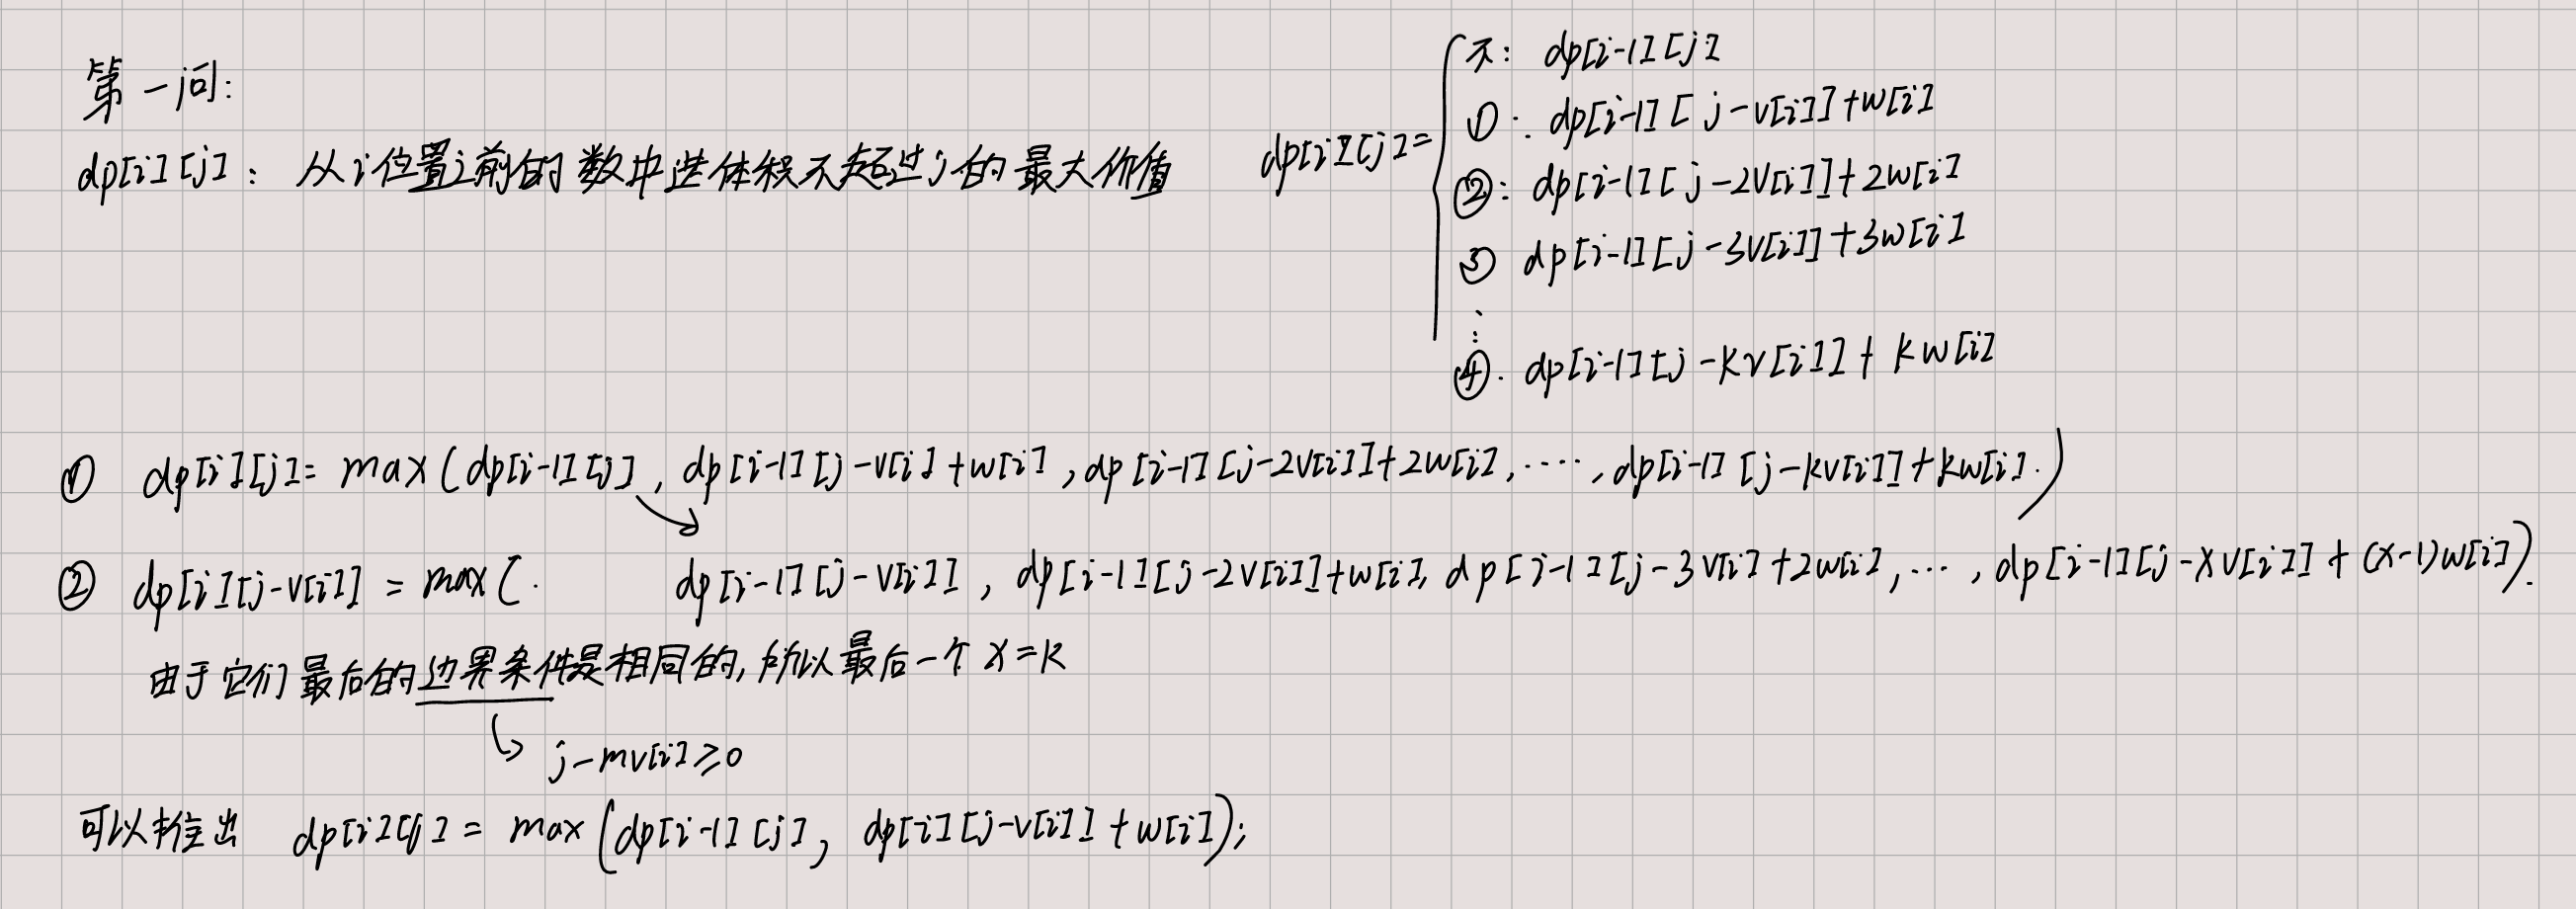 第一问:
dp[i][j]: 从i位置之前的数中选体积不超过j的最大价值
dp[i][j]=
不: dp[i-1][j]
①: dp[i-1][j-v[i]]+w[i]
②: dp[i-1][j-2v[i]]+2w[i]
③ dp[i-1][j-3v[i]]+3w[i]
⋮
④. dp[i-1][j-kv[i]]+kw[i]
① dp[i][j]= max(dp[i-1][j], dp[i-1][j-v[i]+w[i], dp[i-1][j-2v[i]]+2w[i], ····, dp[i-1][j-kv[i]]+kw[i].)
② dp[i][j-v[i]] = max(. dp[i-1][j-v[i]], dp[i-1][j-2v[i]]+w[i], dp[i-1][j-3v[i]+2w[i], ···, dp[i-1][j-xv[i]]+(x-1)w[i]).
由于它们最后的边界条件是相同的,所以最后一个 x=k
j-mv[i]≥0
可以推出 dp[i][j] = max(dp[i-1][j], dp[i][j-v[i]]+w[i]);